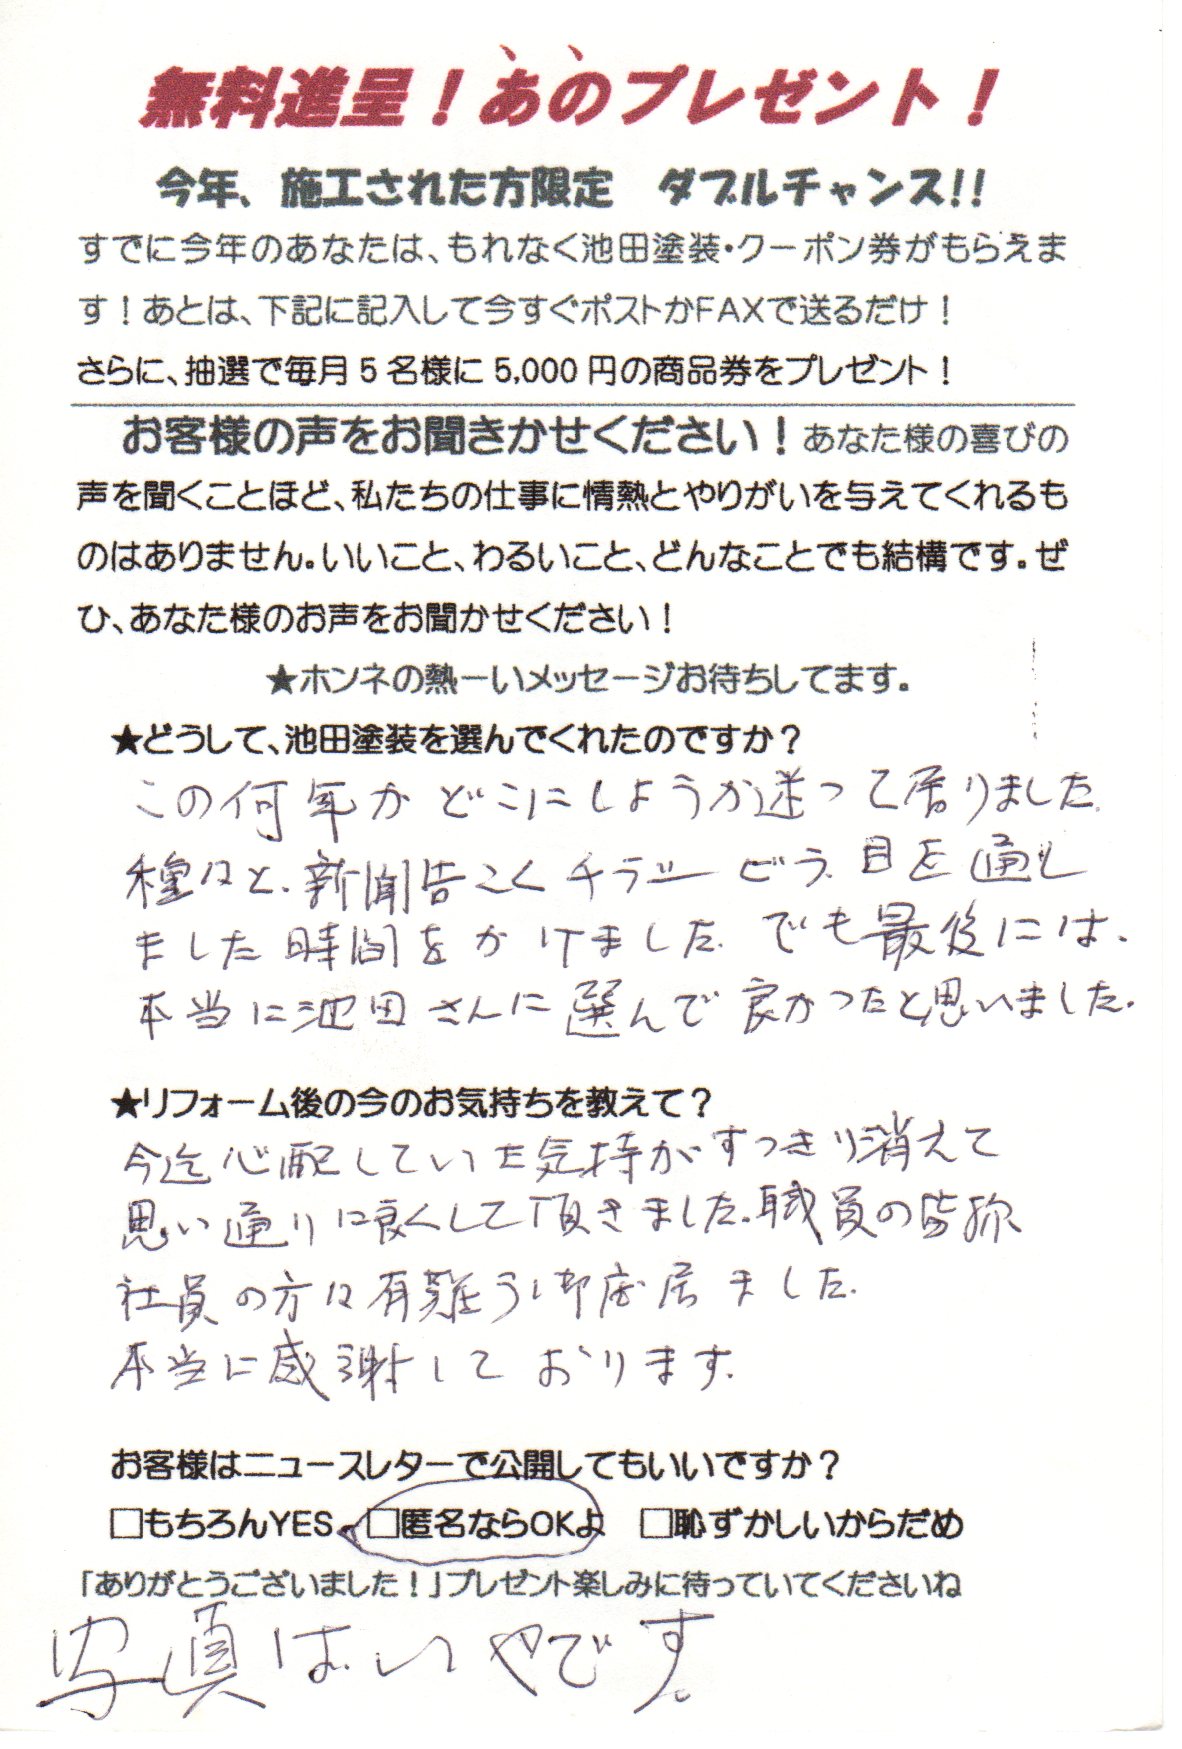 無料進呈！あのプレゼント！
今年、施工された方限定　ダブルチャンス!!
すでに今年のあなたは、もれなく池田塗装・クーポン券がもらえま
す！あとは、下記に記入して今すぐポストかFAXで送るだけ！
さらに、抽選で毎月５名様に 5,000 円の商品券をプレゼント！
お客様の声をお聞きかせください！あなた様の喜びの
声を聞くことほど、私たちの仕事に情熱とやりがいを与えてくれるも
のはありません。いいこと、わるいこと、どんなことでも結構です。ぜ
ひ、あなた様のお声をお聞かせください！
★ホンネの熱ーいメッセージお待ちしてます。
★どうして、池田塗装を選んでくれたのですか？
この何年かどこにしようか迷って居りました。
種々と、新聞告こくチラシー どう、目を通し
ました時間をかけました。でも最後には、
本当に池田さんに選んで良かったと思いました。
★リフォーム後の今のお気持ちを教えて？
今迄心配していた気持がすっきり消えて
思い通りに良くして頂きました。職員の皆様
社員の方々有難う御座居ました。
本当に感謝しております。
お客様はニュースレターで公開してもいいですか？
□もちろんYES　□匿名ならOKよ　□恥ずかしいからだめ
「ありがとうございました！」プレゼント楽しみに待っていてくださいね
写真はいやです。